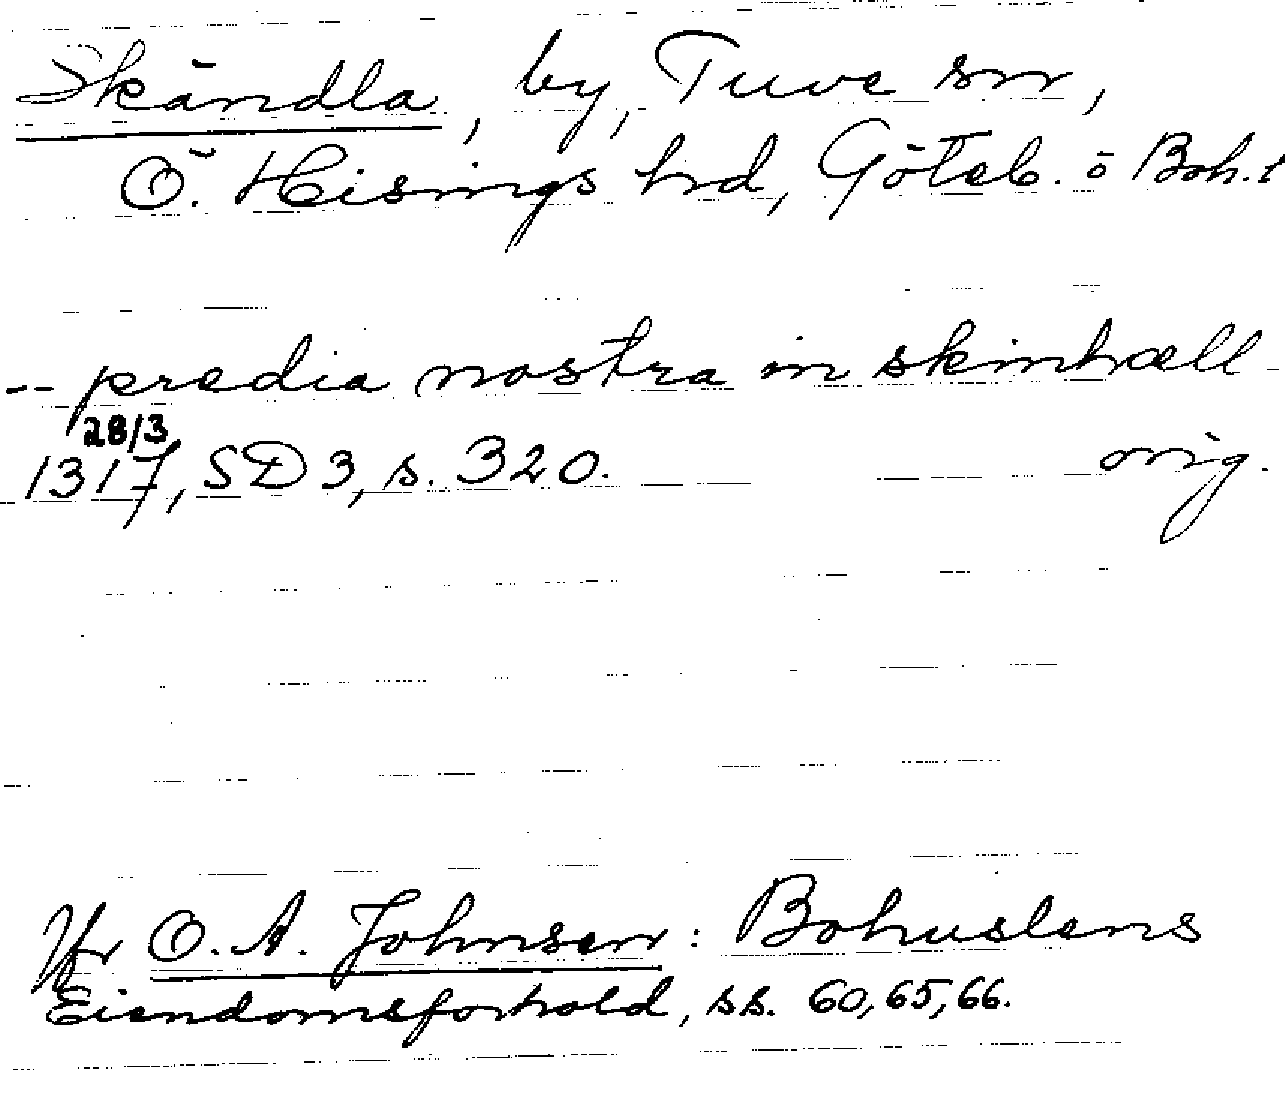 Skändla, by, Tuve sn,
Ö. Hisings hrd, Göteb. o Boh. l
-- predia nostra in skinhæll -
28/3
1317, SD 3, s. 320. orig.
Jfr O. A. Johnsen: Bohuslens
Eiendomsforhold, ss. 60, 65, 66.